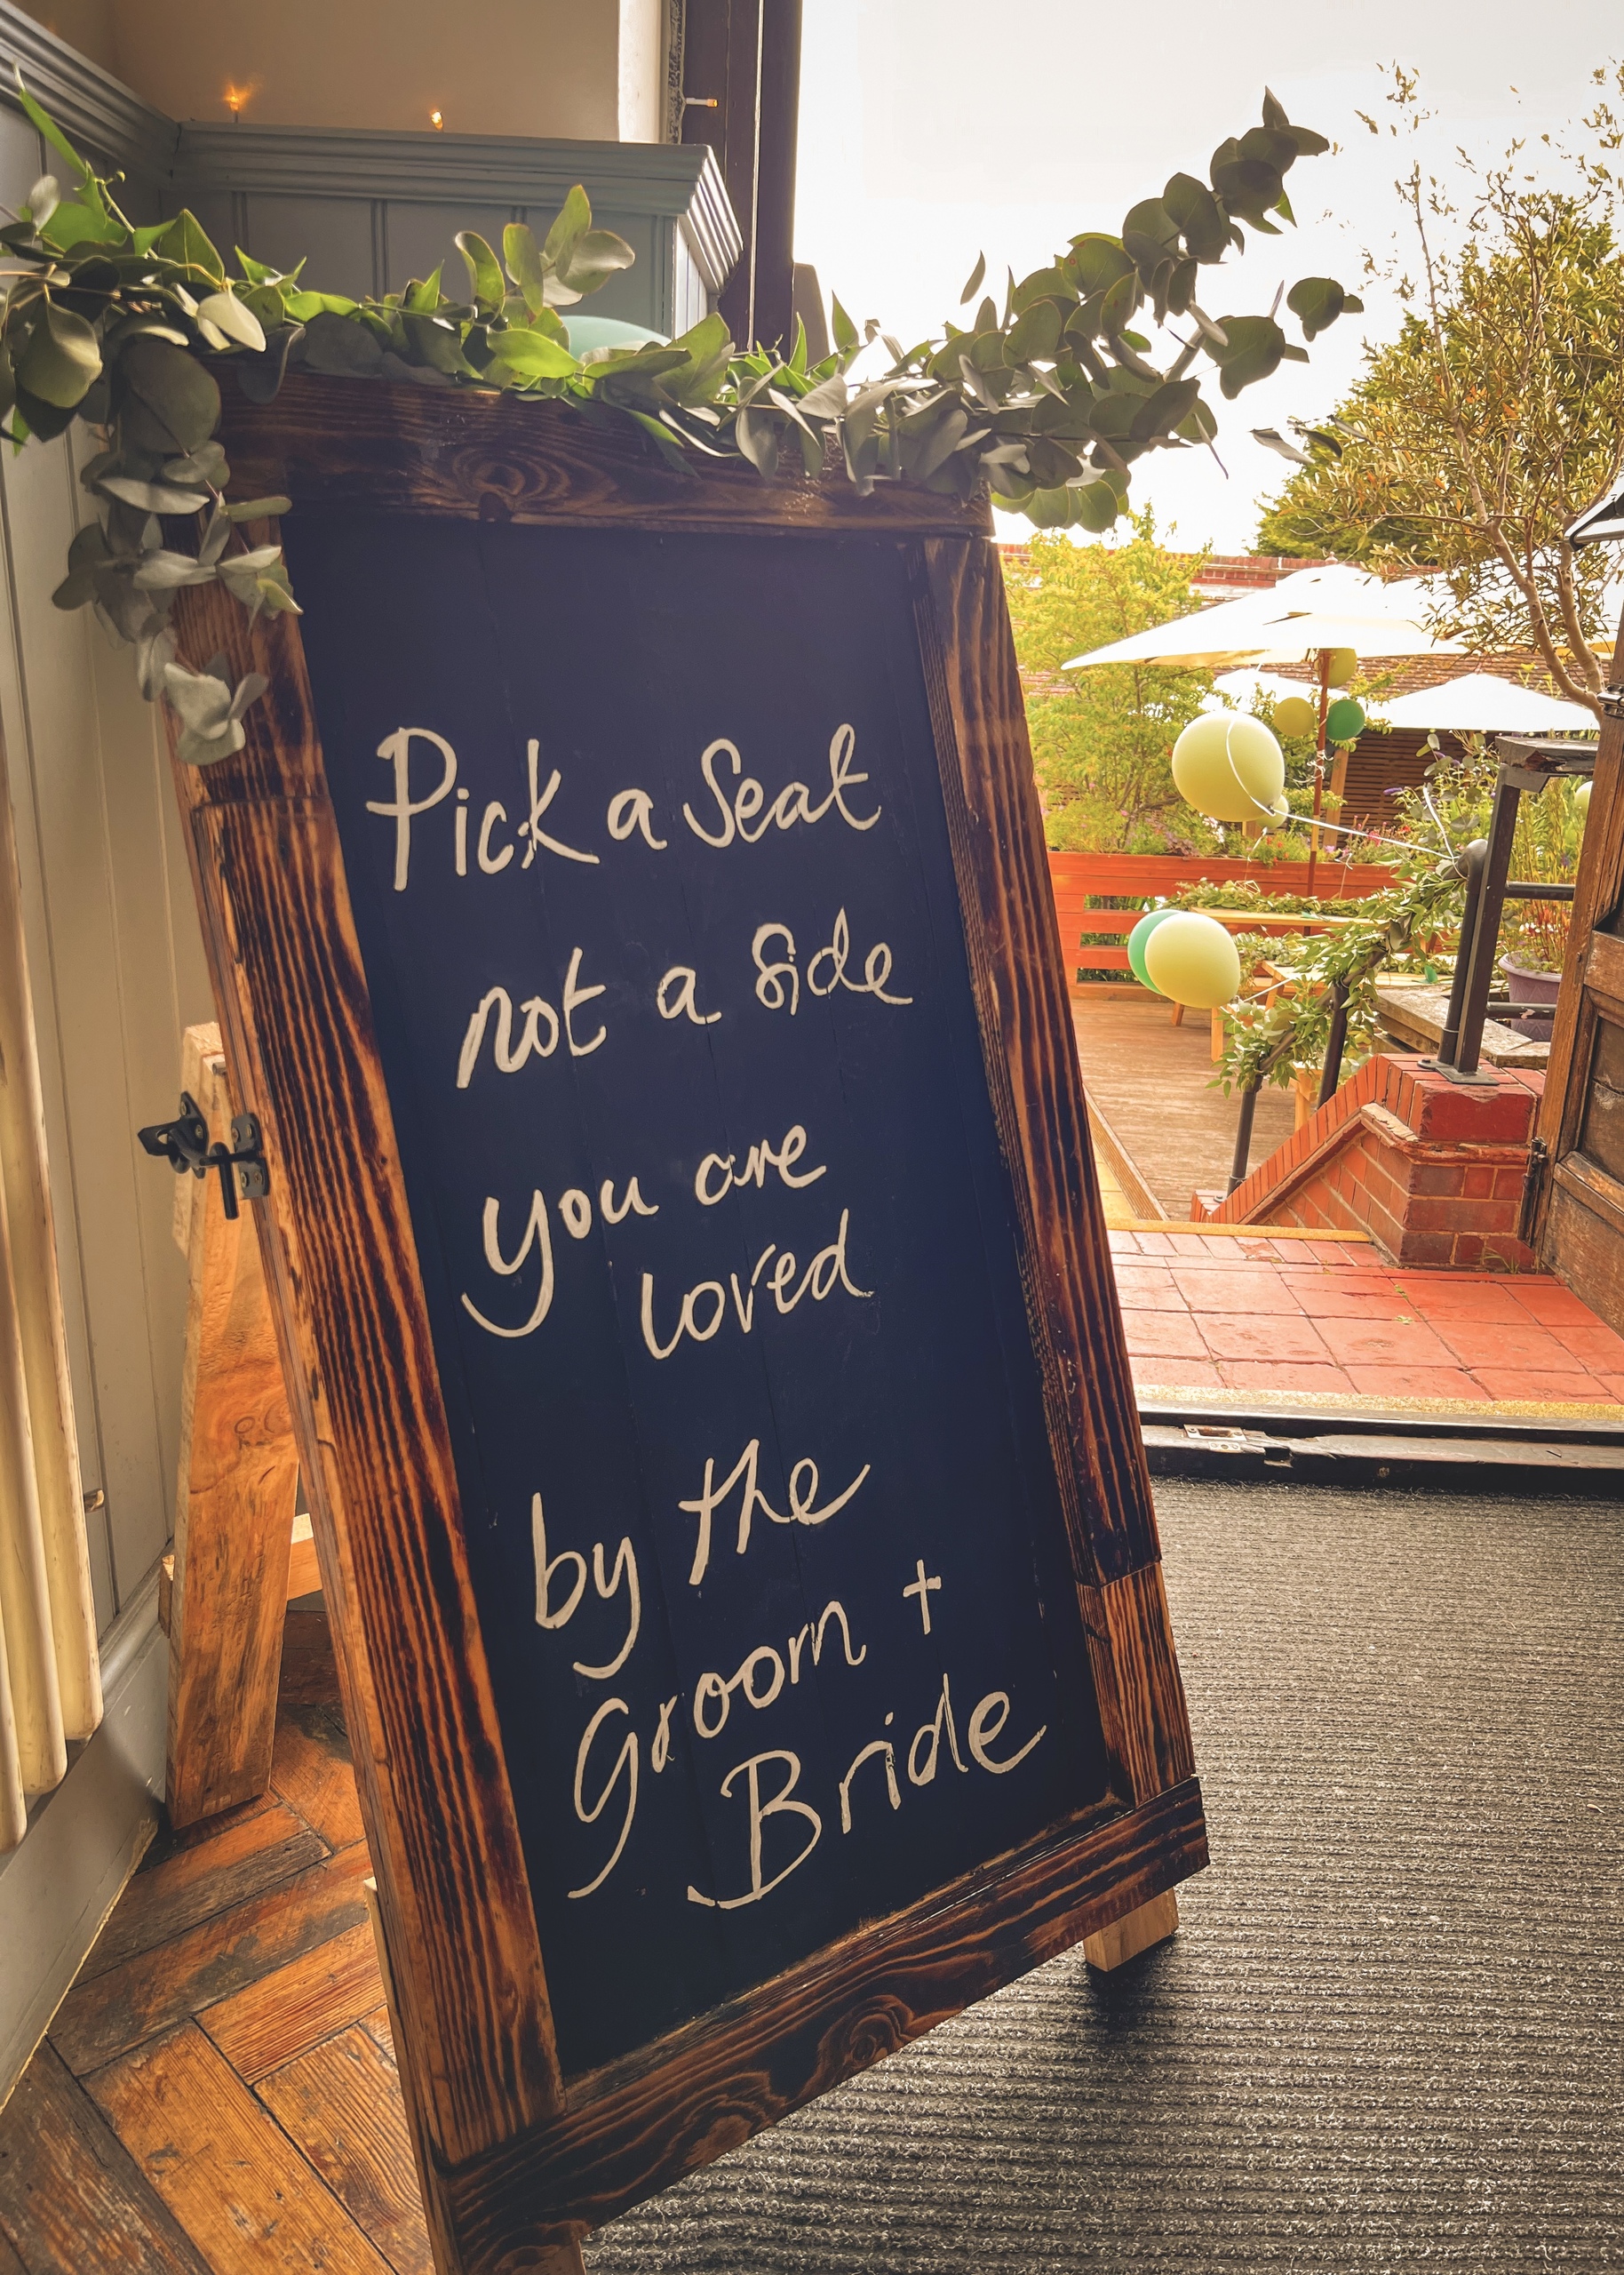 Pick a Seat
not a side
you are
loved
by the
Groom +
Bride